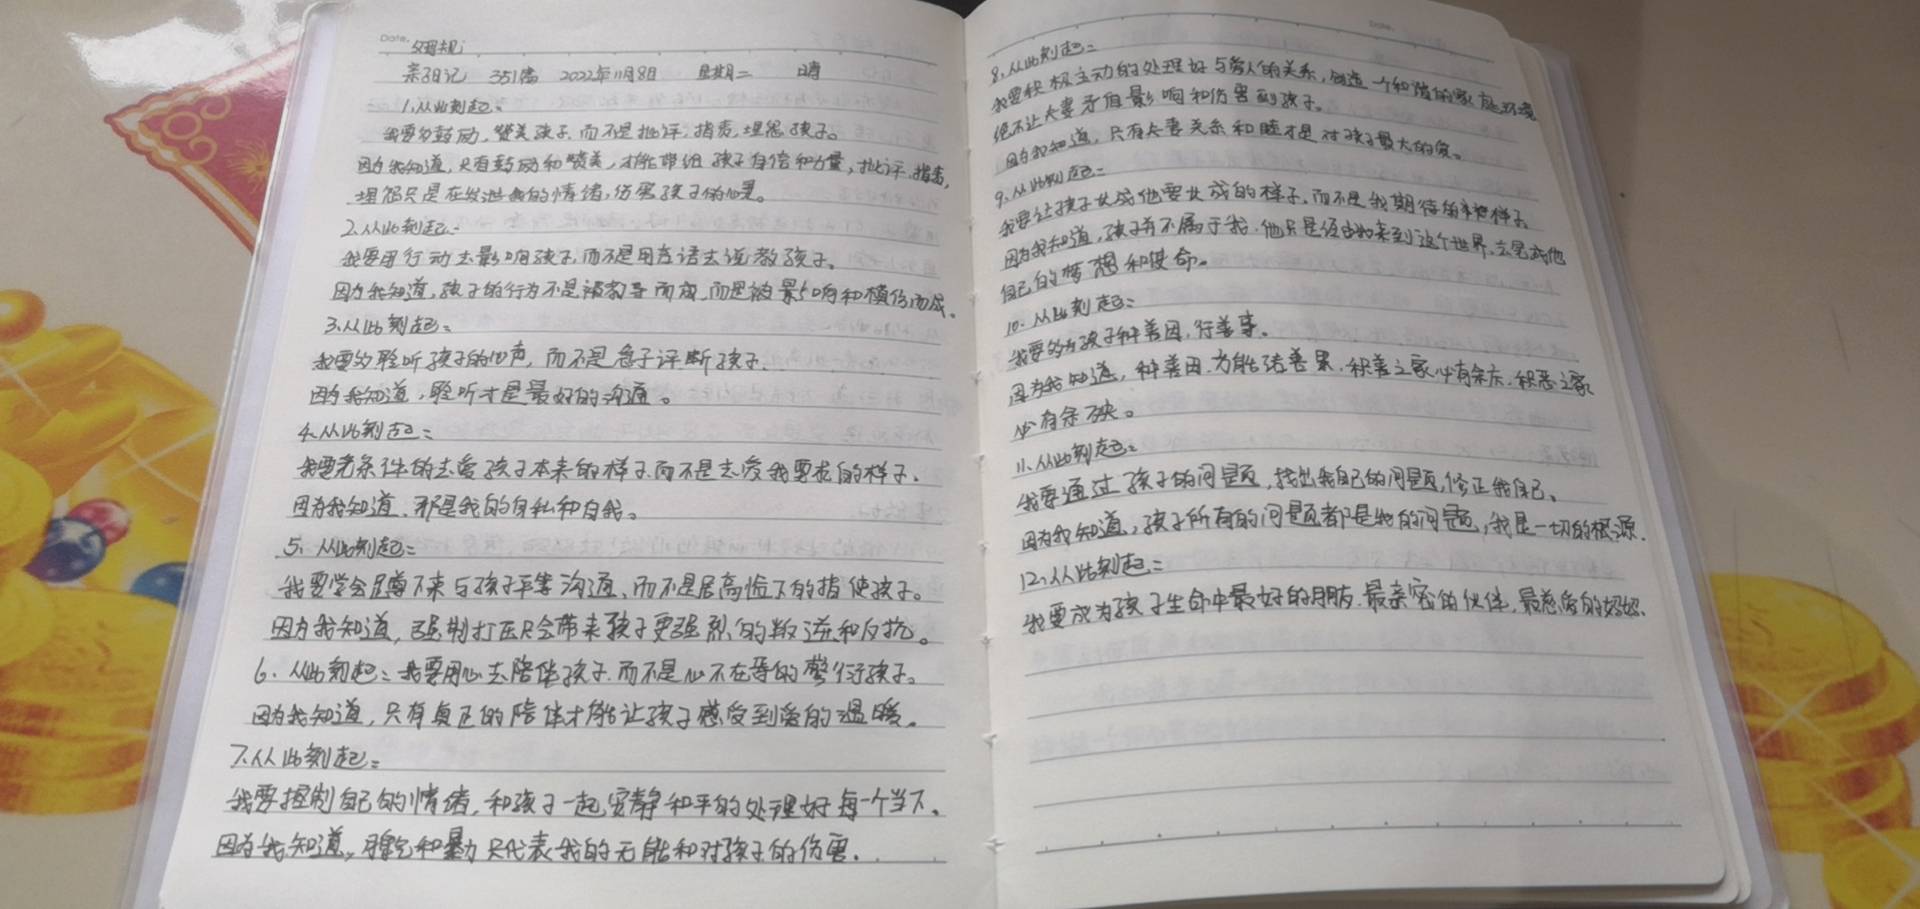 Date.
父母规
亲子日记 351篇 2022年11月8日 星期二 晴
1、从此刻起:
我要多鼓励,赞美孩子,而不是批评,指责,埋怨孩子。
因为我知道,只有鼓励和赞美,才能带给孩子自信和力量,批评,指责,
埋怨只是在发泄我的情绪,伤害孩子的心灵。
2、从此刻起:
我要用行动去影响孩子,而不是用言语去说教孩子。
因为我知道,孩子的行为不是被教导而成,而是被影响和模仿而成。
3、从此刻起:
我要多聆听孩子的心声,而不是急于评断孩子.
因为我知道,聆听才是最好的沟通。
4、从此刻起:
我要无条件的去爱孩子本来的样子,而不是去爱我要求的样子。
因为我知道、那是我的自私和自我。
5、从此刻起:
我要学会蹲下来与孩子平等沟通、而不是居高临下的指使孩子。
因为我知道,强制打压只会带来孩子更强烈的叛逆和反抗。
6、从此刻起:我要用心去陪伴孩子,而不是心不在焉的敷衍孩子。
因为我知道,只有真正的陪伴才能让孩子感受到爱的温暖。
7、从此刻起:
我要控制自己的情绪,和孩子一起安静和平的处理好每一个当下、
因为我知道,和暴力只代表我的无能和对孩子的伤害.
Date.
8、从此刻起:
我要积极主动的处理好与爱人的关系,创造一个和谐的家庭环境
绝不让夫妻矛盾影响和伤害到孩子。
因为我知道,只有夫妻关系和睦才是对孩子最大的爱。
9、从此刻起:
我要让孩子长成他要长成的样子,而不是我期待的样子
因为我知道,孩子并不属于我.他只是经由我来到这个世界,去完成他
自己的梦想和使命。
10、从此刻起:
我要多为孩子种善因,行善事.
因为我知道,种善因,方能结善果.积善之家必有余庆.积恶之家
必有余殃。
11、从此刻起:
我要通过孩子的问题,找出我自己的问题,修正我自己、
因为我知道,孩子所有的问题都是我的问题,我是一切的根源.
12、从此刻起:
我要成为孩子生命中最好的朋友.最亲密的伙伴,最慈爱的妈妈.